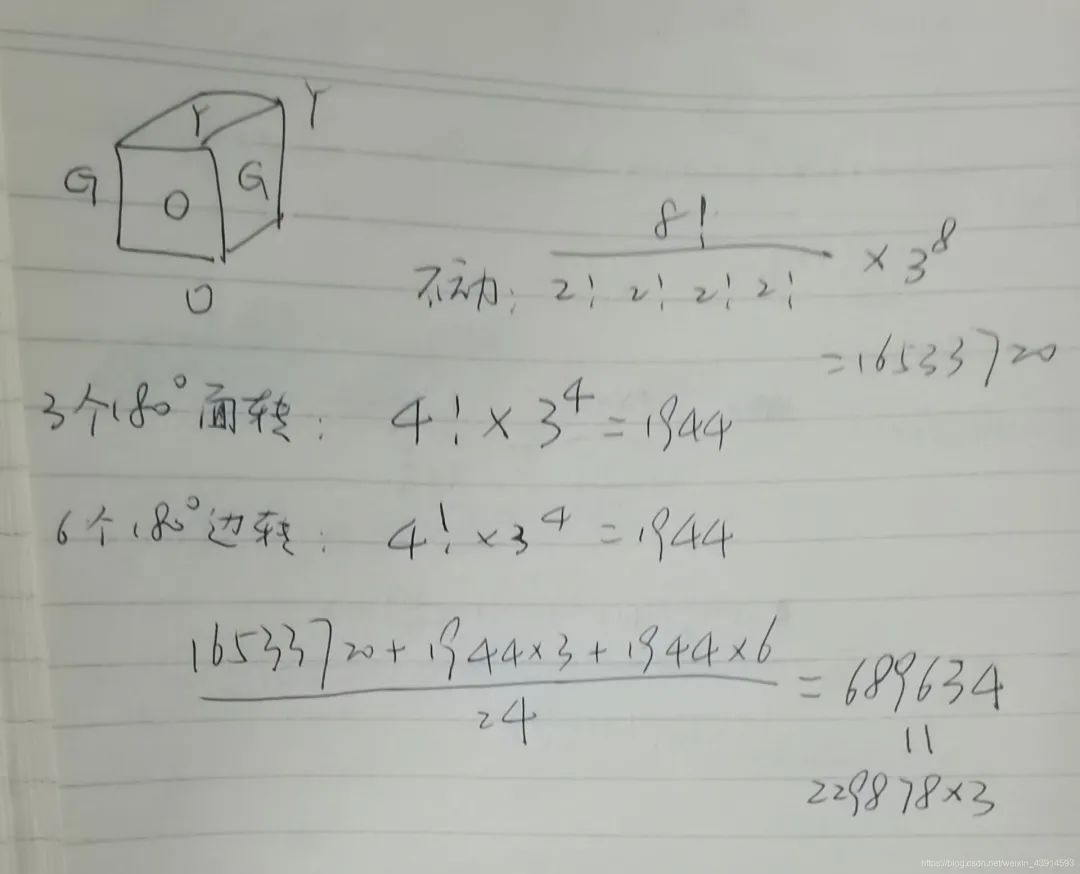 Y
Y
G
O
G
O
不动: 8! / 2! 2! 2! 2! × 3^8
= 16533720
3个180°面转: 4! × 3^4 = 1944
6个180°边转: 4! × 3^4 = 1944
16533720 + 1944×3 + 1944×6 / 24 = 689634
||
229878×3
https://blog.csdn.net/weixin_43914593